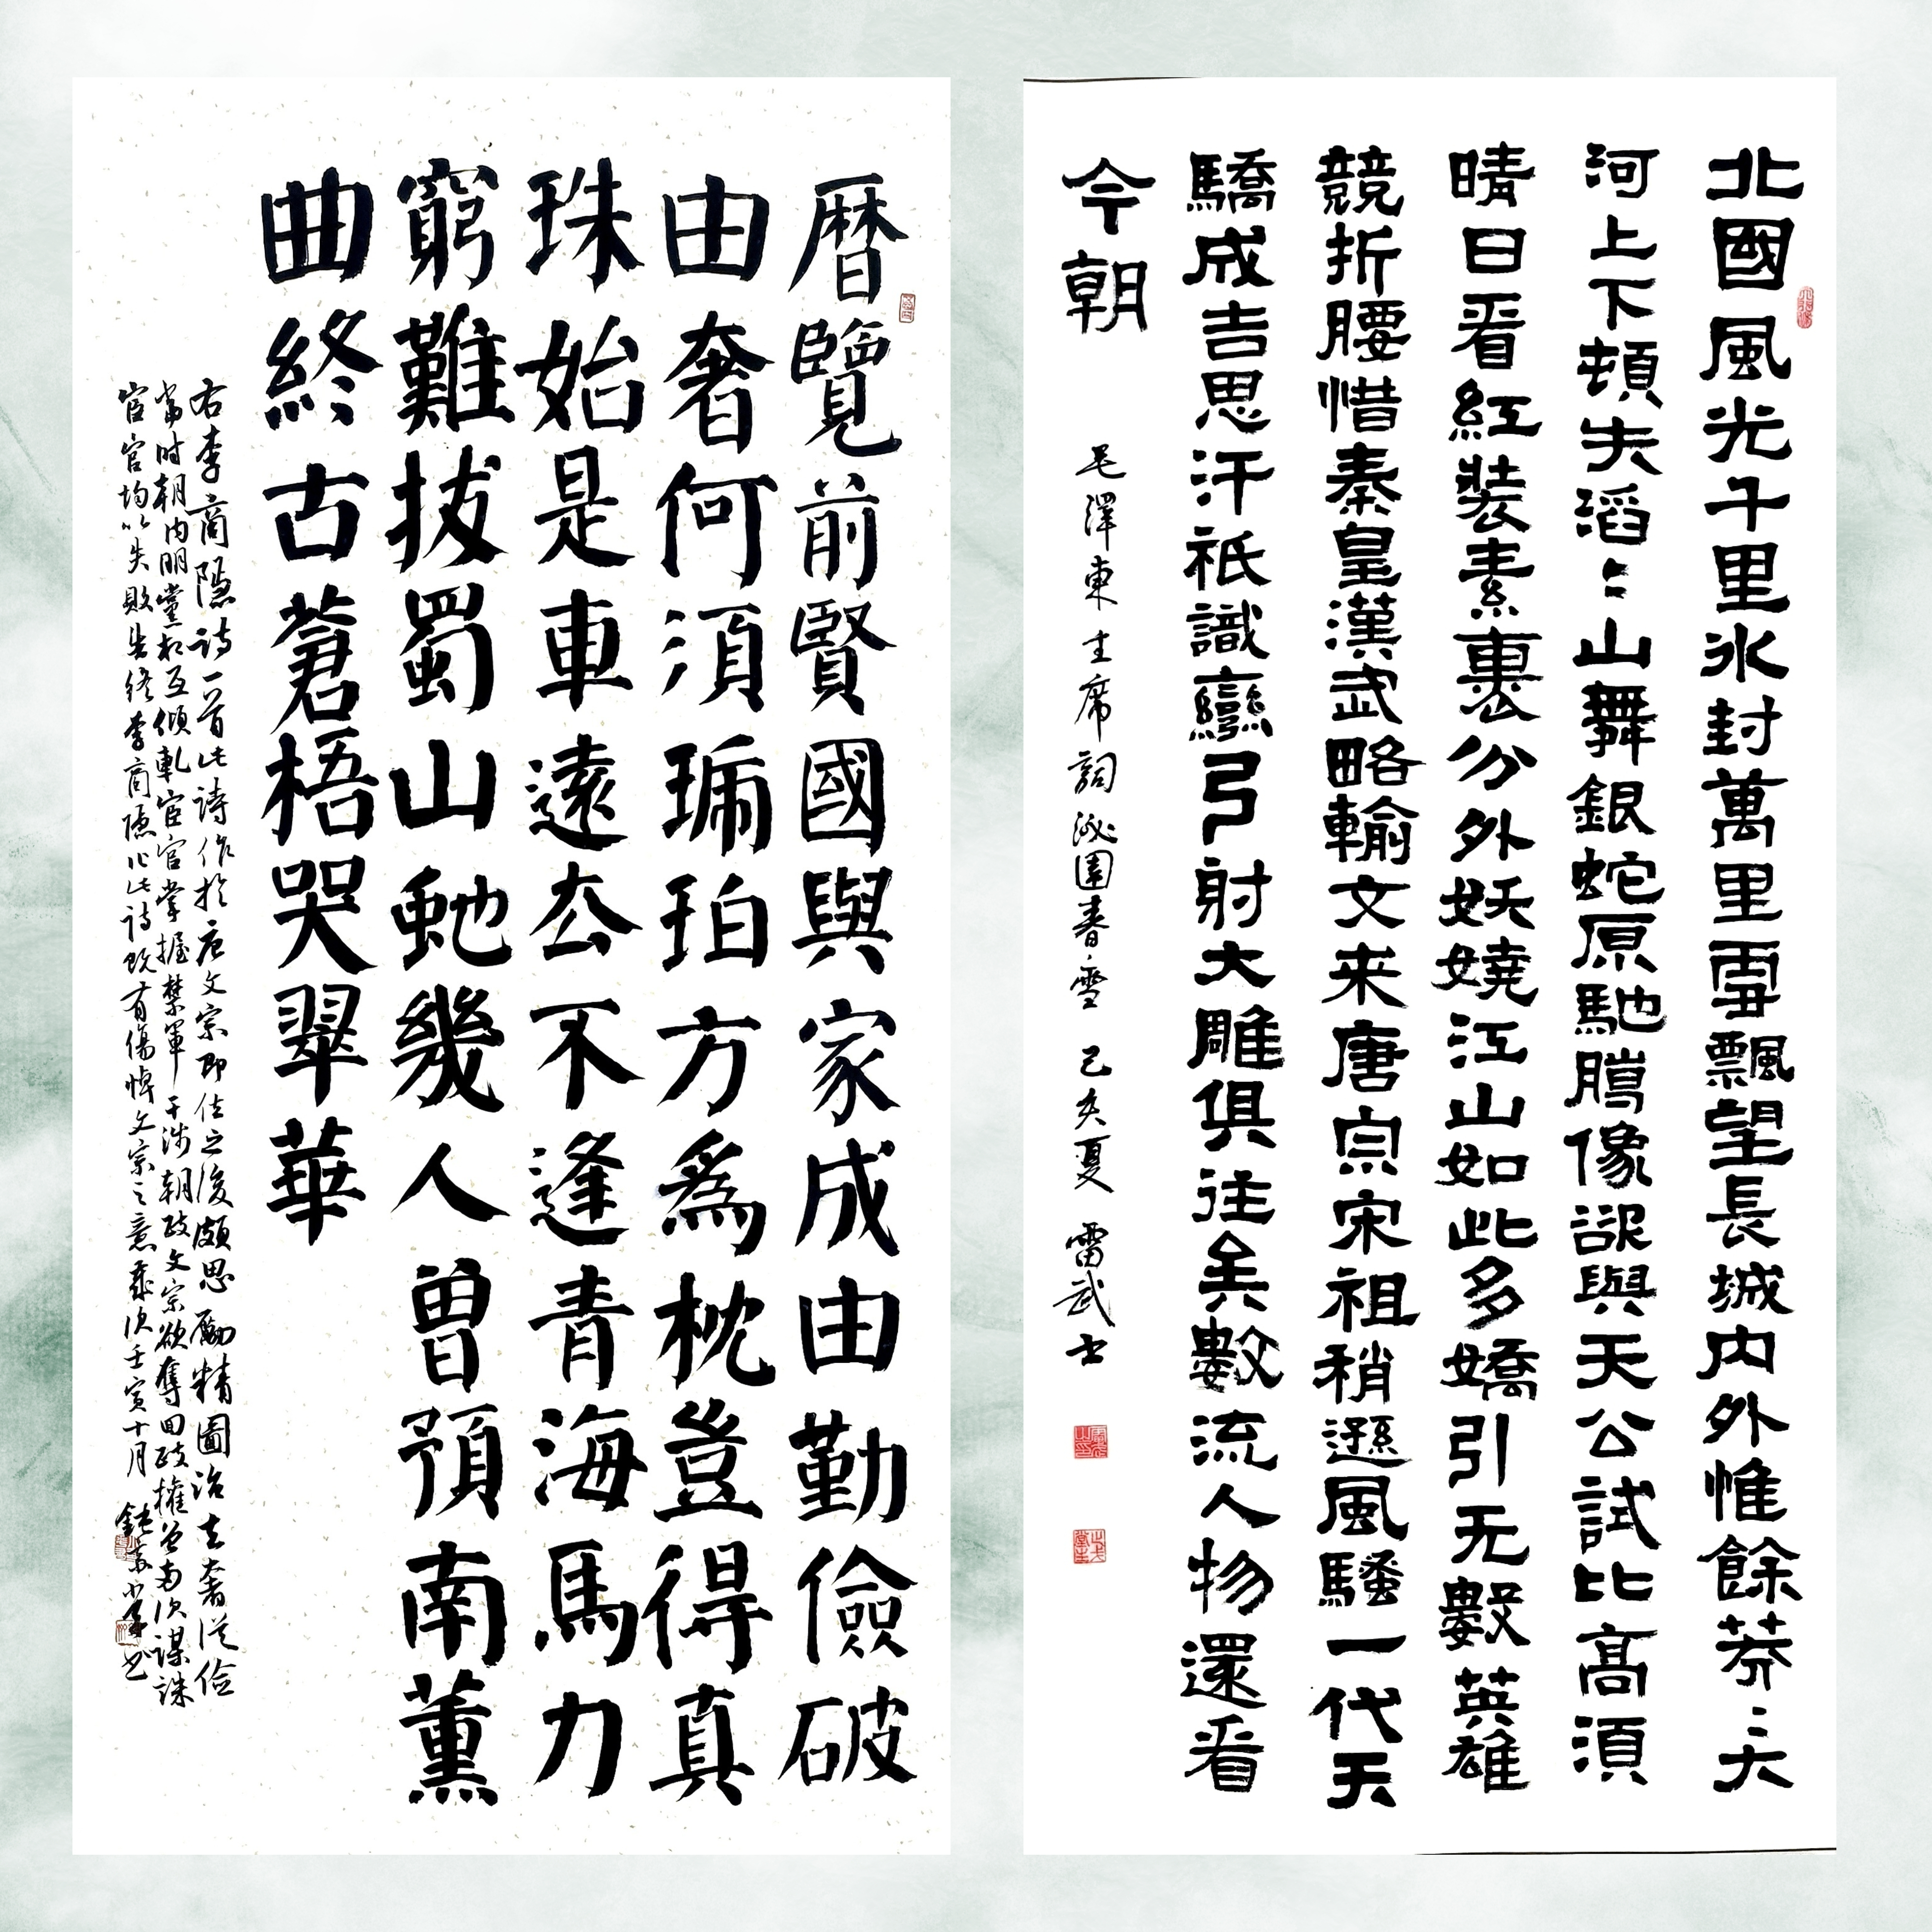 北國風光千里冰封萬里雪飄望長城内外惟餘莽〻大
河上下頓失滔〻山舞銀蛇原馳像欲與天公試比高須
晴日看紅裝素裹分外妖嬈江山如此多嬌引无數英雄
競折腰惜秦皇漢武略輸文来唐宗宋祖稍遜風騷一代天
驕成吉思汗祇識彎弓射大雕俱往矣數流人物還看
今朝
毛澤東主席詞沁園春·雪 己亥夏 雷武士
暦覽前賢國與家成由勤儉破
由奢何須琥珀方為枕豈得真
珠始是車遠去不逢青海馬力
窮難拔蜀山虵幾人曾預南薰
曲終古蒼梧哭翠華
右李商隱詩一首此詩作於唐文宗即位之後頗思勵精圖治去奢從儉
當时朝内朋黨相互傾軋宦官掌握禁軍干涉朝政文宗欲奪回政權曾兩次謀誅
宦官均以失敗告終李商隱作此詩既有傷悼文宗之意歲次壬寅十月書